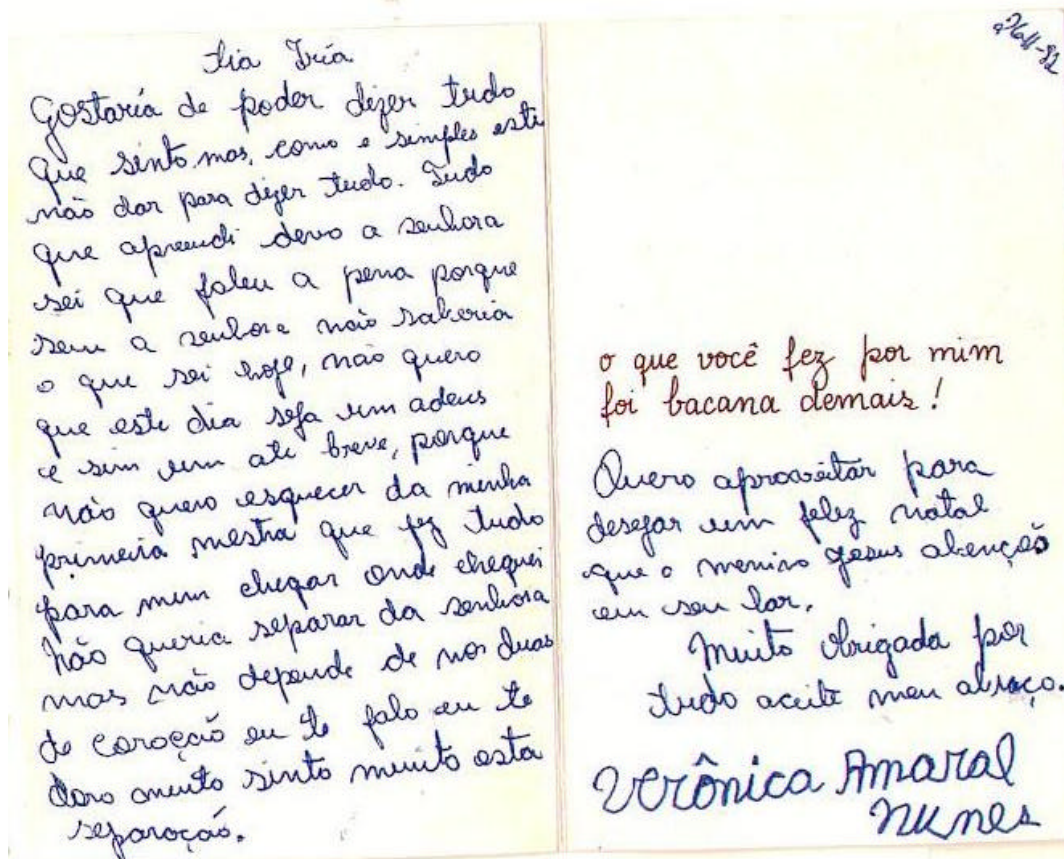 Tia Iria
Gostaria de poder dizer tudo
que sinto mas, como e simples este
não dar para dizer tudo. Tudo
que apreendi devo a senhora
sei que foleu a pena porque
sem a senhora não saberia
o que sei hoje, não quero
que este dia seja um adeus
e sim um ate breve, porque
não quero esquecer da minha
primeira mestra que fez tudo
para mim chegar onde cheguei
Não queria separar da senhora
mas não depende de nos duas
de coroção eu te falo eu te
doro muito sinto muito esta
separoção.
26-11-92
o que você fez por mim
foi bacana demais!
Quero aproveitar para
desejar um feliz natal
que o menino jesus abenção
em seu lar.
Muito Obrigada por
tudo aceite meu abraço.
Verônica Amaral
Nunes